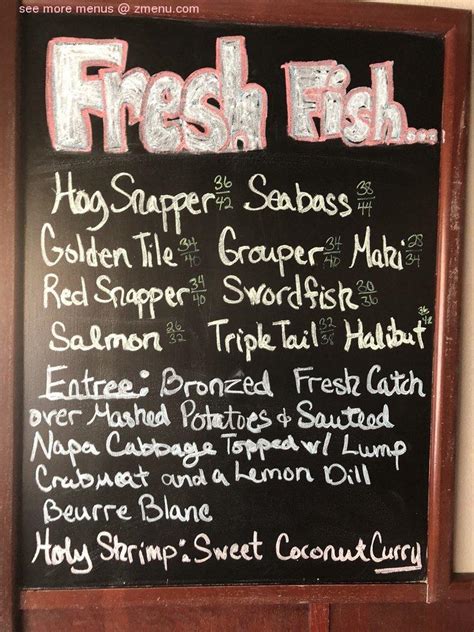 see more menus @ zmenu.com
Fresh Fish...
Hog Snapper 36/42 Seabass 38/44
Golden Tile 34/40 Grouper 34/40 Mahi 28/34
Red Snapper 34/40 Swordfish 30/36
Salmon 26/32 Triple Tail 32/38 Halibut 36/42
Entree: Bronzed Fresh Catch
over Mashed Potatoes & Sauteed
Napa Cabbage Topped w/ Lump
Crabmeat and a Lemon Dill
Beurre Blanc
Holy Shrimp: Sweet Coconut Curry